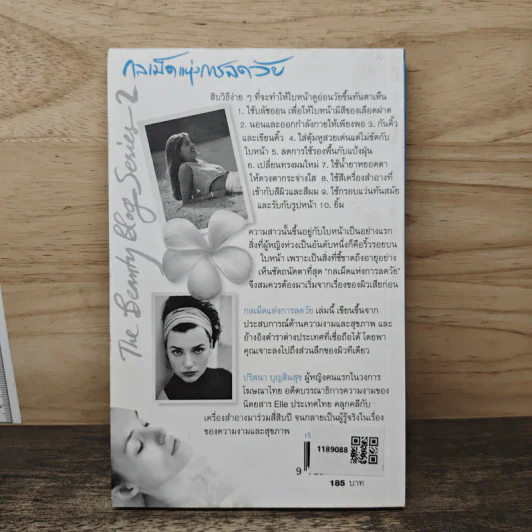 กลเม็ดแห่งการลดวัย
The Beauty Blog Series-2
สิบวิธีง่าย ๆ ที่จะทำให้ใบหน้าดูอ่อนวัยขึ้นทันตาเห็น
1. ใช้บลัชออน เพื่อให้ใบหน้ามีสีของเลือดฝาด
2. นอนและออกกำลังกายให้เพียงพอ 3. กันคิ้ว
และเขียนคิ้ว 4. ใส่ตุ้มหูสวยเด่นแต่ไม่ขัดกับ
ใบหน้า 5. ลดการใช้รองพื้นกับแป้งฝุ่น
6. เปลี่ยนทรงผมใหม่ 7. ใช้น้ำยาหยอดตา
ให้ดวงตากระจ่างใส 8. ใช้สีเครื่องสำอางที่
เข้ากับสีผิวและสีผม 9. ใช้กรอบแว่นทันสมัย
และรับกับรูปหน้า 10. ยิ้ม
ความสาวนั้นขึ้นอยู่กับใบหน้าเป็นอย่างแรก
สิ่งที่ผู้หญิงห่วงเป็นอันดับหนึ่งก็คือริ้วรอยบน
ใบหน้า เพราะเป็นสิ่งที่ชี้ขาดถึงอายุอย่าง
เห็นชัดถนัดตาที่สุด "กลเม็ดแห่งการลดวัย"
จึงสมควรต้องมาเริ่มจากเรื่องของผิวเสียก่อน
กลเม็ดแห่งการลดวัย เล่มนี้ เขียนขึ้นจาก
ประสบการณ์ด้านความงามและสุขภาพ และ
อ้างอิงตำราต่างประเทศที่เชื่อถือได้ โดยพา
คุณเจาะลงไปถึงส่วนลึกของผิวทีเดียว
ปริสนา บุญสินสุข ผู้หญิงคนแรกในวงการ
โฆษณาไทย อดีตบรรณาธิการความงามของ
นิตยสาร Elle ประเทศไทย คลุกคลีกับ
เครื่องสำอางมาร่วมสี่สิบปี จนกลายเป็นผู้รู้จริงในเรื่อง
ของความงามและสุขภาพ
IS
1189088
9
185 บาท